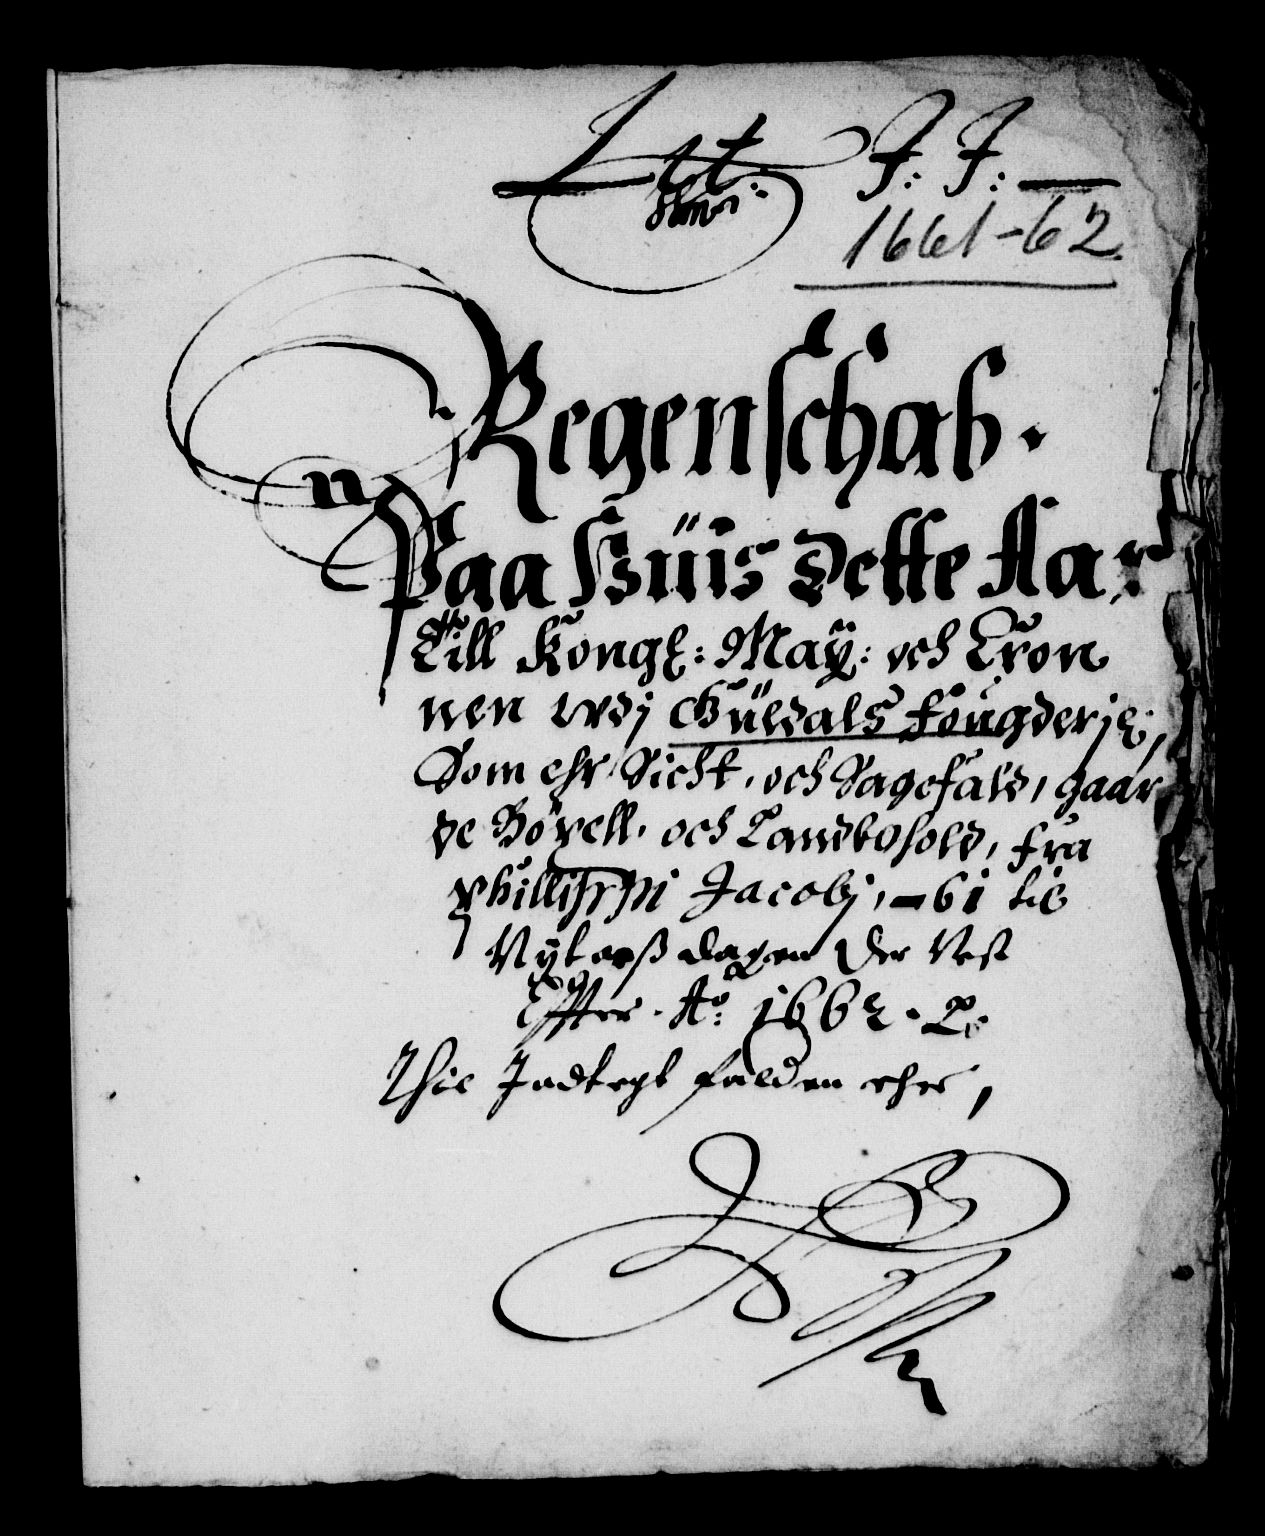 Litt J: J:
1661-62
Regenschab.
Paa Huis Dette Aar
Till Kongl: May: och Cron
nen udj Guldals Fougderje,
Som ehr Sicht, och Sagefald, gaar
de Böxell, och Landbohold, fra
Phillippi Jacobj, -61 til
Nytaarß dagen Der Nest
Effter. Ao: 1662.
Jndtegt falden ehr,